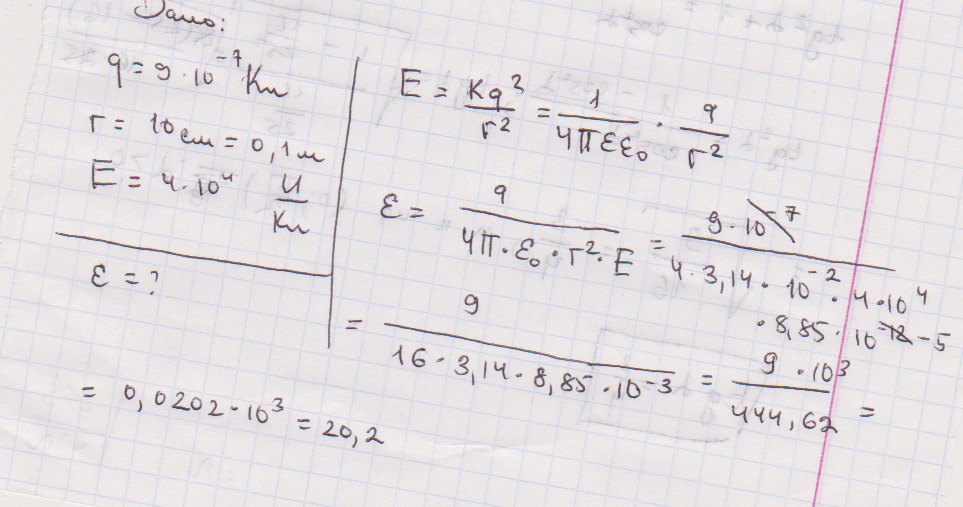 Дано:
q = 9·10⁻⁷ Кл
r = 10 см = 0,1 м
E = 4·10⁴ Н/Кл
ε = ?
E = Kq²/r² = 1/4πεε₀ · q/r²
ε = q/4π·ε₀·r²·E = 9·10⁻⁷/4·3,14·10⁻²·4·10⁴
·8,85·10⁻¹² -5
= 9/16·3,14·8,85·10⁻³ = 9·10³/444,62 =
= 0,0202·10³ = 20,2